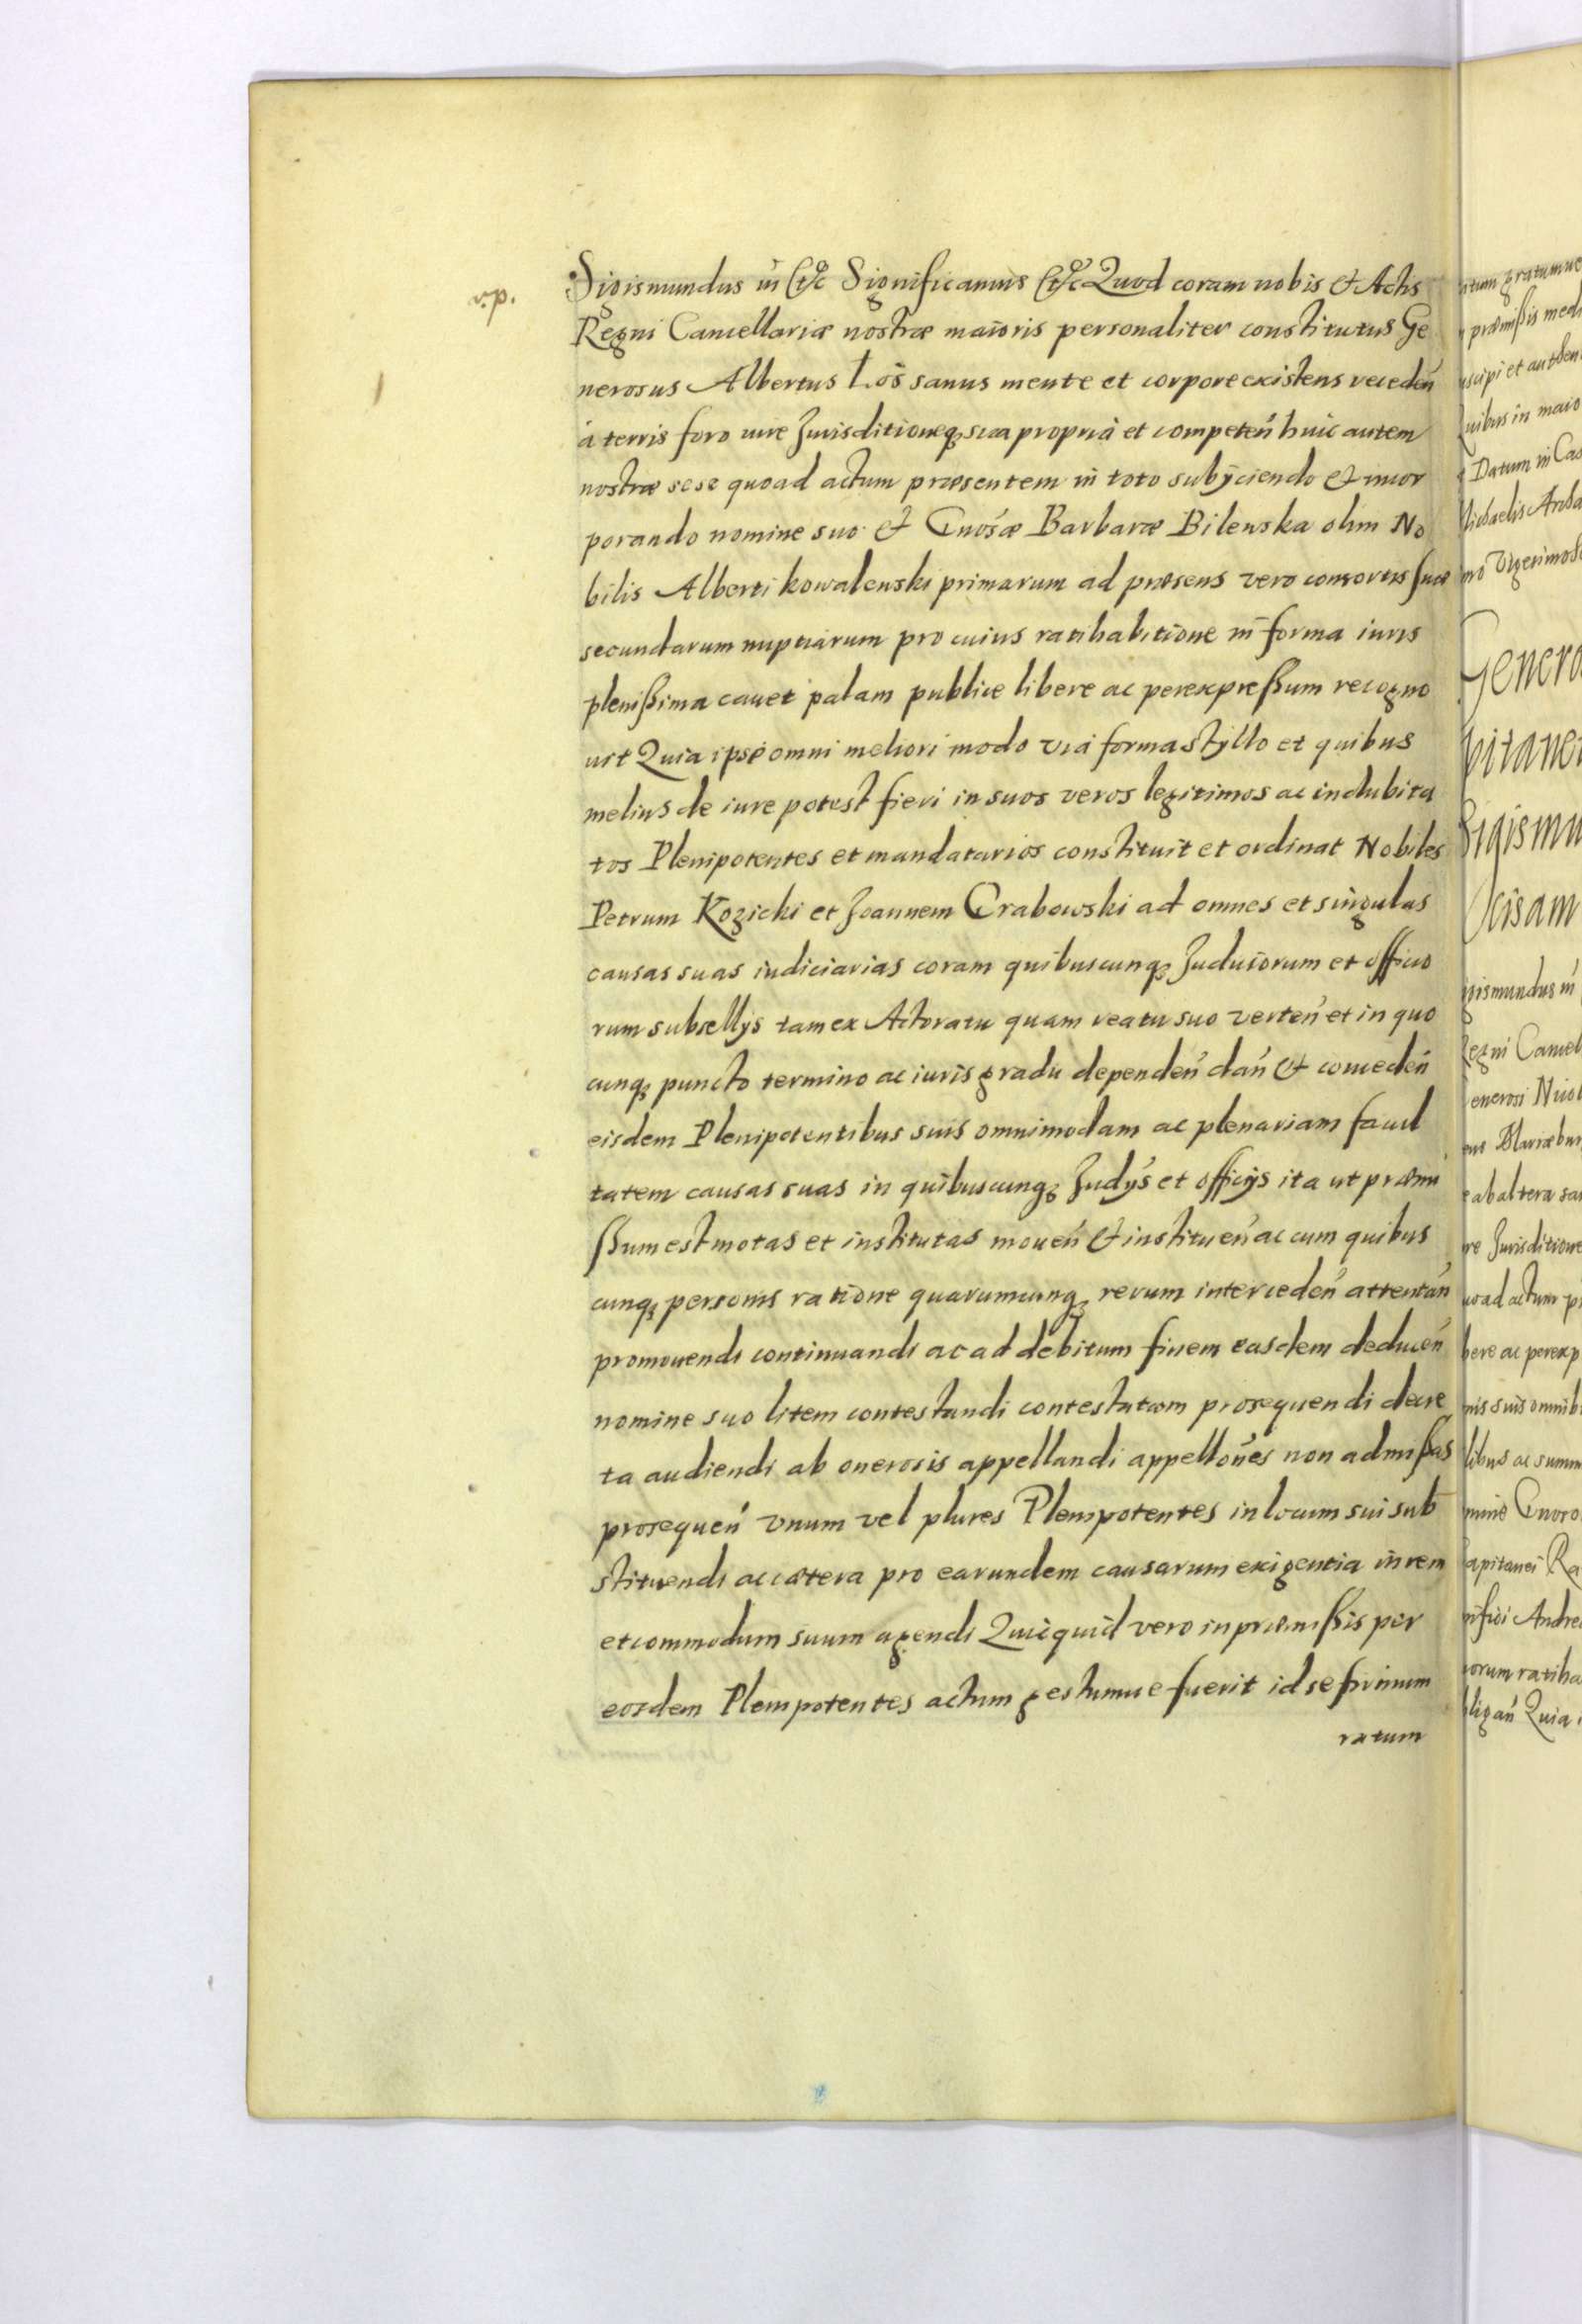 v.p.
Sigismundus iii &c Significamus &c Quod coram nobis & Actis
Regni Cancellariæ nostræ maioris personaliter constitutus Ge
nerosus Albertus Łoś sanus mente et corpore existens receden̄
à terris foro iure Jurisditioneq; sua propriâ et competen̄ huic autem
nostræ sese quoad actum præsentem in toto subijciendo & incor
porando nomine suo & Gnosæ Barbaræ Bilewska olim No
bilis Alberti kowalewski primarum ad præsens vero consortis suæ
secundarum nuptiarum pro cuius ratihabitione in forma iuris
plenißima cauet palam publice libere ac per expreßum recogno
uit Quia ipse omni meliori modo viâ forma stijllo et quibus
melius de iure potest fieri in suos veros legitimos ac indubita
tos Plenipotentes et mandatarios constituit et ordinat Nobiles
Petrum Kozicki et Joannem Grabowski ad omnes et singulas
causas suas iudiciarias coram quibuscunq; Judiciorum et officio
rum subsellijs tam ex Actoratu quam reatu suo verten̄ et in quo
cunq; puncto termino ac iuris gradu dependen̄ dan̄ & conceden̄
eisdem Plenipotentibus suis omnimodam ac plenariam facul
tatem causas suas in quibuscunq; Judijs et officijs ita ut præmi
ßum est motas et institutas mouen̄ & instituen̄ ac cum quibus
cunq; personis ratione quarumcunq; rerum interceden̄ attentan̄
promouendi continuandi ac ad debitum finem easdem deducen̄
nomine suo litem contestandi contestatam prosequendi decre
ta audiendi ab onerosis appellandi appellōnes non admißas
prosequen̄ vnum vel plures Plenipotentes in locum sui sub
stituendi ac cætera pro earundem causarum exigentia in rem
et commodum suum agendi Quicquid vero in præmißis per
eosdem Plenipotentes actum gestumue fuerit id se firmum
ratum